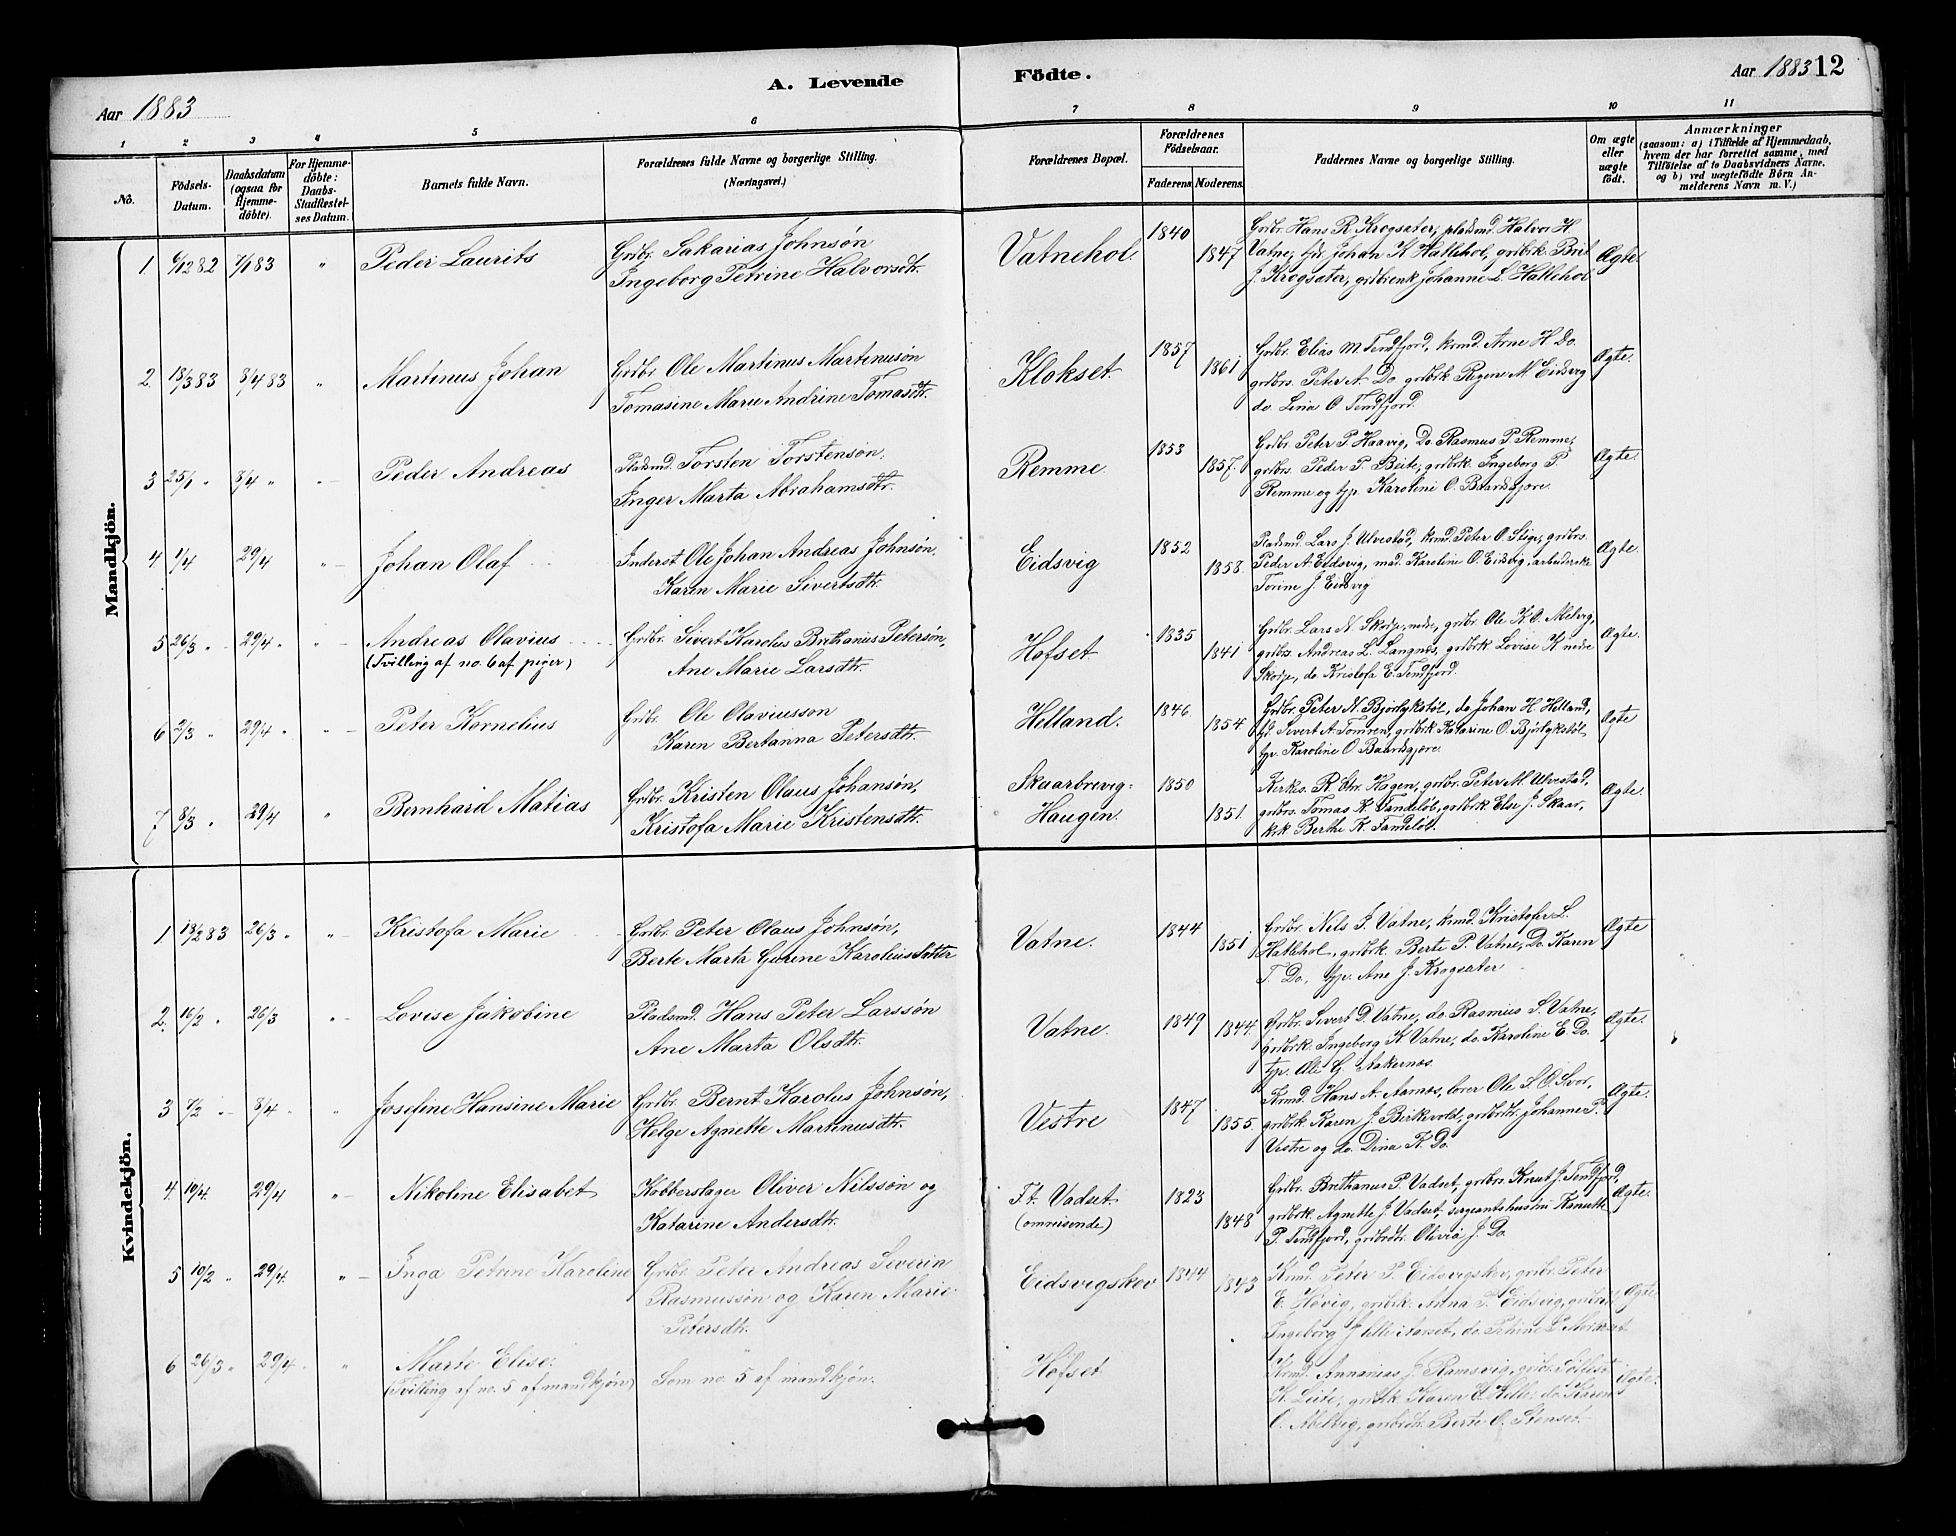 Aar 1883
A. Levende Födte.
Aar 1883 12
1 2 3 4 5 6 7 8 9 10 11
No.
Födsels-Datum.
Daabsdatum (ogsaa for Hjemme-döbte).
For Hjemme-döbte: Daabs-Stadfæstel-ses Datum.
Barnets fulde Navn.
Forældrenes fulde Navne og borgerlige Stilling.
(Næringsvei.)
Forældrenes Bopæl.
Forældrenes Födselsaar.
Faderens. Moderens.
Faddernes Navne og borgerlige Stilling.
Om ægte eller uægte födt.
Anmærkninger
(saasom: a) i Tilfælde af Hjemmedaab,
hvem der har forrettet samme, med
Tilföielse af to Daabsvidners Navne,
og b) ved uægtefödte Börn An-
melderens Navn m. V.)
Mandkjön.
1 6/12 82 7/1 83 " Peder Laurits
Grdbr. Sakarias Johnsøn
Ingeborg Petrine Halvorsdtr.
Vatnehol 1840 1847
Grdbr. Hans R. Krogsæter, pladsmd. Halvor H.
Vatne, Johan K. Hatlehol, grdbrk. Brit
J. Krogsæter, grdbrenk. Johanne L. Hatlehol
Ægte.
2. 18/3 83 8/4 83 " Martinus Johan
Grdbr. Ole Martinus Martinusøn
Tomasine Marie Andrine Tomasdtr.
Klokset. 1857 1861
Grdbr. Elias M. Tendfjord, krmd. Arne H. Do.
grdbrs. Peter A. Do. grdbrk. M. Eidsvig
do. Lina O. Tendfjord.
Ægte.
3 25/1 " 8/4 " " Peder Andreas
Pladsmd. Torsten Torstensøn,
Inger Marta Abrahamsdtr.
Remme 1853 1857.
Grdbr. Peter P. Haavig, Do. Rasmus P. Remme,
grdbrs. Peder P. Beite, grdbrk. Ingeborg P.
Remme og tjp. Karoline O. Baardsgjære.
Ægte.
4 1/4 29/4 " Johan Olaf
Inderst Ole Johan Andreas Johnsøn,
Karen Marie Sivertsdtr.
Eidsvig 1852 1858.
Pladsmd. Lars J. Ulvestad, krmd. Peter O. Stige, grdbrs.
Peder A. Eidsvig, mad. Karoline O. Eidsvig,
Torine J. Eidsvig
Ægte.
5 26/3 " 29/4 " " Andreas Olavius
(Tvilling af no. 6 af piger)
Grdbr. Sivert Karolus Brethanus Petersøn,
Ane Marie Larsdtr.
Hofset 1835 1841
Grdbr. Lars N. Skorje, nedre, grdbr. Ole K. O. Melvig,
grdbrs. Andreas L. Langnes, grdbrk. Lovise K. nedre
Skorje, do. Kristofa E. Tendfjord.
Ægte.
6 2/3 " 29/4 " " Peter Kornelius
Grdbr. Ole Olaviusson
Karen Bertanna Petersdtr.
Helland. 1846 1854
Grdbr. Peter N. Bjørlykstøl, do Johan H. Helland,
Sivert A. Tomren, grdbrk. Katarine O. Bjørlykstøl
tjp. Karoline O. Baardsgjære.
Ægte
7 8/3 " 29/4 " Bernhard Matias
Grdbr. Kristen Olaus Johansøn,
Kristofa Marie Kristensdtr.
Skaarbrevig-
Haugen. 1850 1851.
Kirkes. R. Chr. Hagen, grdbr. Peter M. Ulvestad,
grdbrs. Tomas K. Tandeløb, grdbrk. Else J. Skaar,
Berthe K. Tandeløb.
Ægte.
Kvindekjön.
1 18/2 83 26/3 " " Kristofa Marie
Grdbr. Peter Olaus Johnsøn,
Berte Marta Gurine Karoliusdatter
Vatne. 1844 1851
Grdbr. Nils J. Vatne, krmd. Kristofer L.
Hatlehol, grdbrk. Berte P. Vatne, Do. Karen
T. Do, tjp. Ane J. Krogsæter
Ægte
2. 16/2 " 26/3 " Lovise Jakobine
Pladsmd. Hans Peter Larssøn
Ane Marta Olsdtr.
Vatne. 1849 1844.
Grdbr. Sivert D. Vatne, do. Rasmus S. Vatne,
grdbrk. Ingeborg K. Vatne, do. Karoline E. Do.
tjp. Ole G. Aakernæs.
Ægte.
3 7/2 " 8/4 " " Josefine Hansine Marie
Grdbr. Bernt Karolus Johnsøn,
Helge Agnette Martinusdtr.
Vestre 1847 1855.
Krmd. Hans A. Aarnæs, Ole S. O. Svor,
grdbrk. Karen J. Birkevold, grdbrdtr. Johanne P.
Vestre og do. Dina K. Do.
Ægte.
4. 10/4. 29/4 " Nikoline Elisabet
Kobberslager Oliver Nilssøn og
Katarine Andersdtr.
Ft. Vadset
(omreisende) 1823 1848
Grdbr. Brethanus P. Vadset, grdbrs. Knut J. Tendfjord,
grdbrk. Agnethe J. Vadset, sergeantshustru Kanutte
P. Tendfjord, grdbrdtr. Olivia J. Do.
Ægte.
5 10/2 " 29/4 " Inga Petrine Karoline
Grdbr. Peter Andreas Severin
Rasmussøn og Karen Marie
Petersdtr.
Eidsvigskev 1844 1843
Krmd. Peter P. Eidsvigskev, grdbr. Peter
E. Høvig, grdbrk. Anna T. Eidsvig,
Ingeborg J. do. Petrine P.
Ægte
6 26/3 " 29/4 " " Marte Elise.
(Tvilling af no. 5 af mandkjön)
Som no. 5 af mandkjøn.
Hofset
Krmd. Annanias J. Ramsvig, grdbr.
K. Leite, grdbrk. Karen E. Hille, do. Karen
O. Melvig, grdbrdtr. Berte O. Stenset
Ægte.